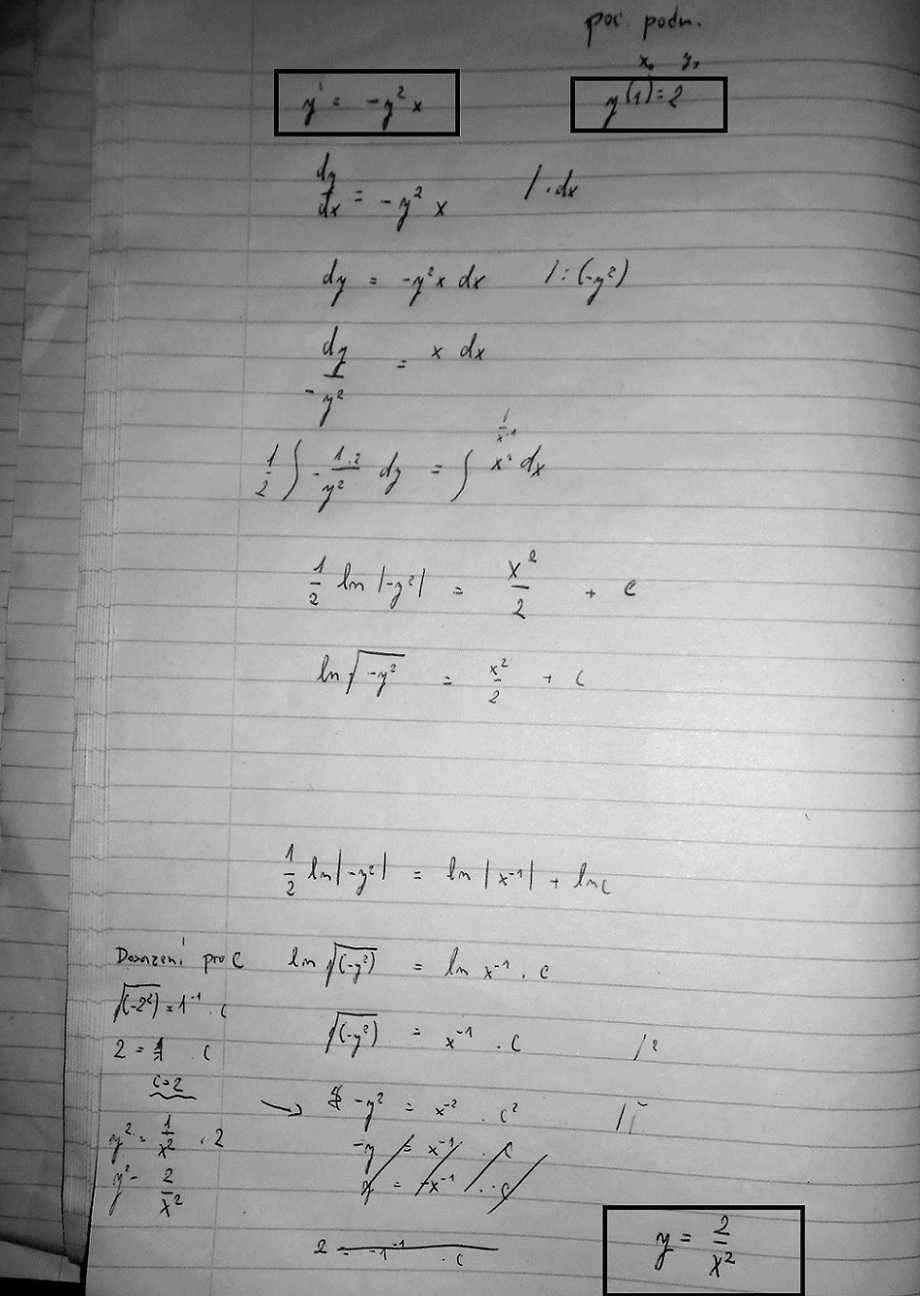 poč. podm.
x₀ y₀
y' = -y² x
y(1)=2
dy/dx = -y² x /·dx
dy = -y²x dx /:(-y²)
dy/-y² = x dx
1/x⁻¹
1/2 ∫ -1·2/y² dy = ∫ x¹ dx
1/2 ln |-y²| = x²/2 + c
ln √-y² = x²/2 + c
1/2 ln|-y²| = ln |x⁻¹| + ln c
Dosazení pro C
ln √(-y²) = ln x⁻¹ · c
√(-2²) = 1⁻¹ · c
√(-y²) = x⁻¹ · c /²
2 = 1 · c
c=2
-y² = x⁻² · c² /√
y² = 1/x² · 2
-y = x⁻¹ · c
y² = 2/x²
y = -x⁻¹ · c
2 = -1⁻¹ · c
y = 2/x²